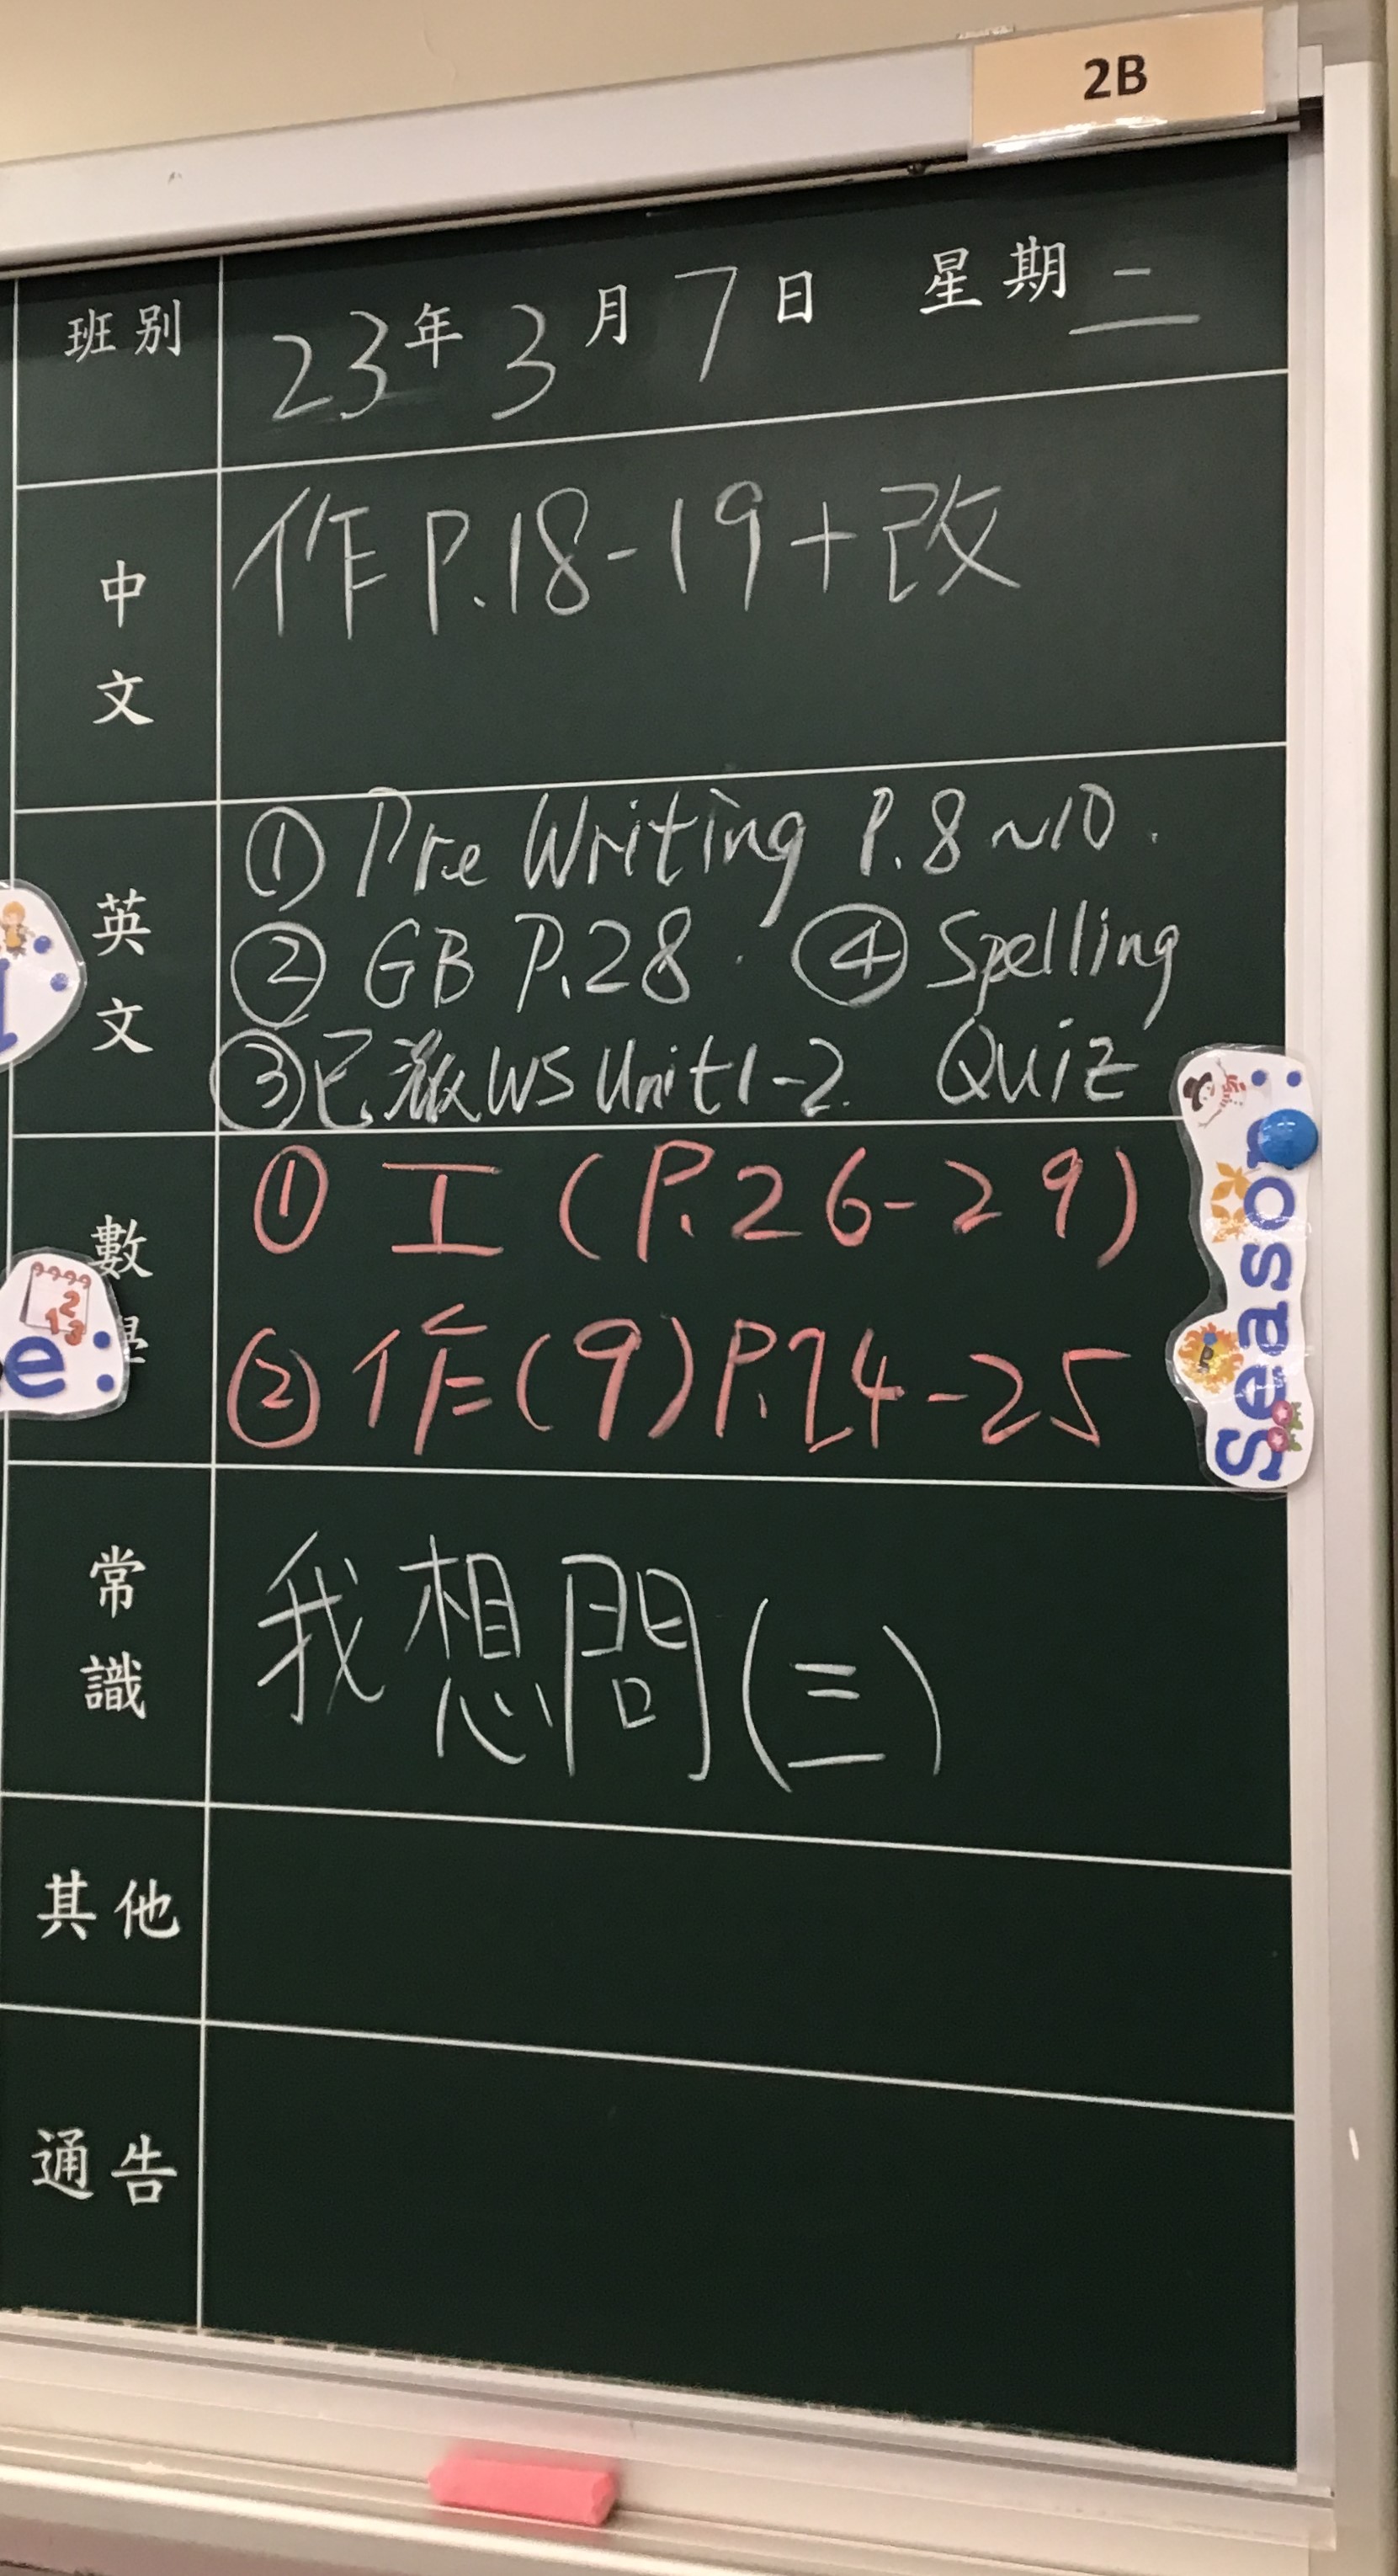 2B
班別
23年3月7日 星期二
中文
作 P.18-19+改
英文
① Pre Writing P.8~10.
② GB P.28. ④ Spelling
③已派WS Unit1-2. Quiz
數學
① 工 (P.26-29)
② 作(9)P.24-25
常識
我想問(三)
其他
通告
Season
e: